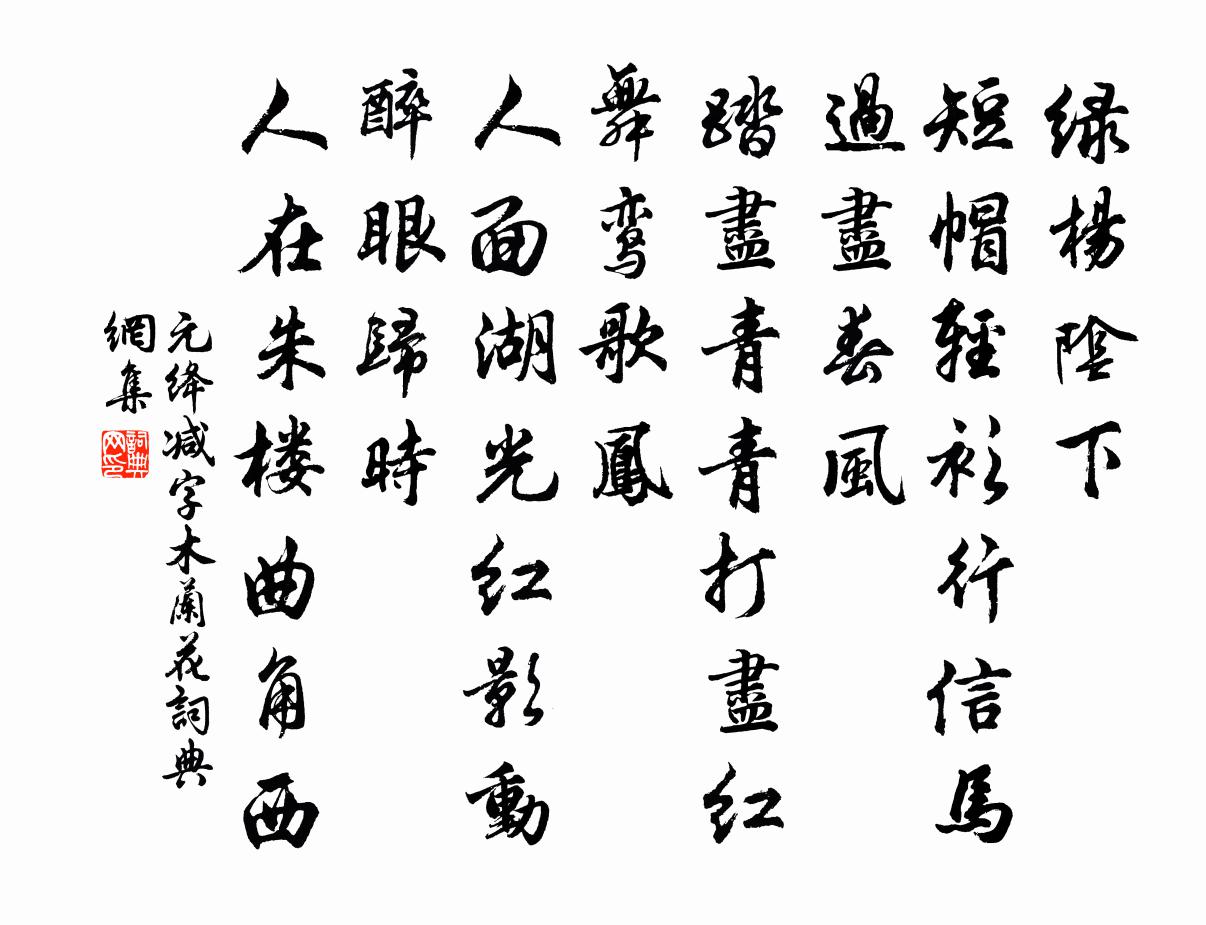 绿楊陰下
短帽輕衫行信馬
過盡春風
踏盡青青打盡红
舞鸾歌鳳
人面湖光红影動
醉眼歸時
人在朱楼曲角西
元绛减字木蘭花詞典
網集
詞典
网印